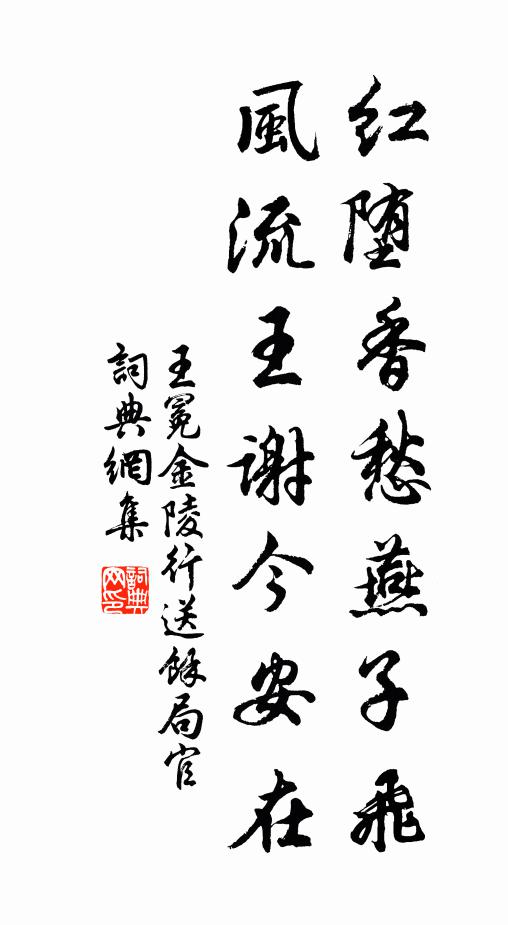 紅堕香愁燕子飛
風流王谢今安在
王冕金陵行送餘局官
詞典網集
詞典網印